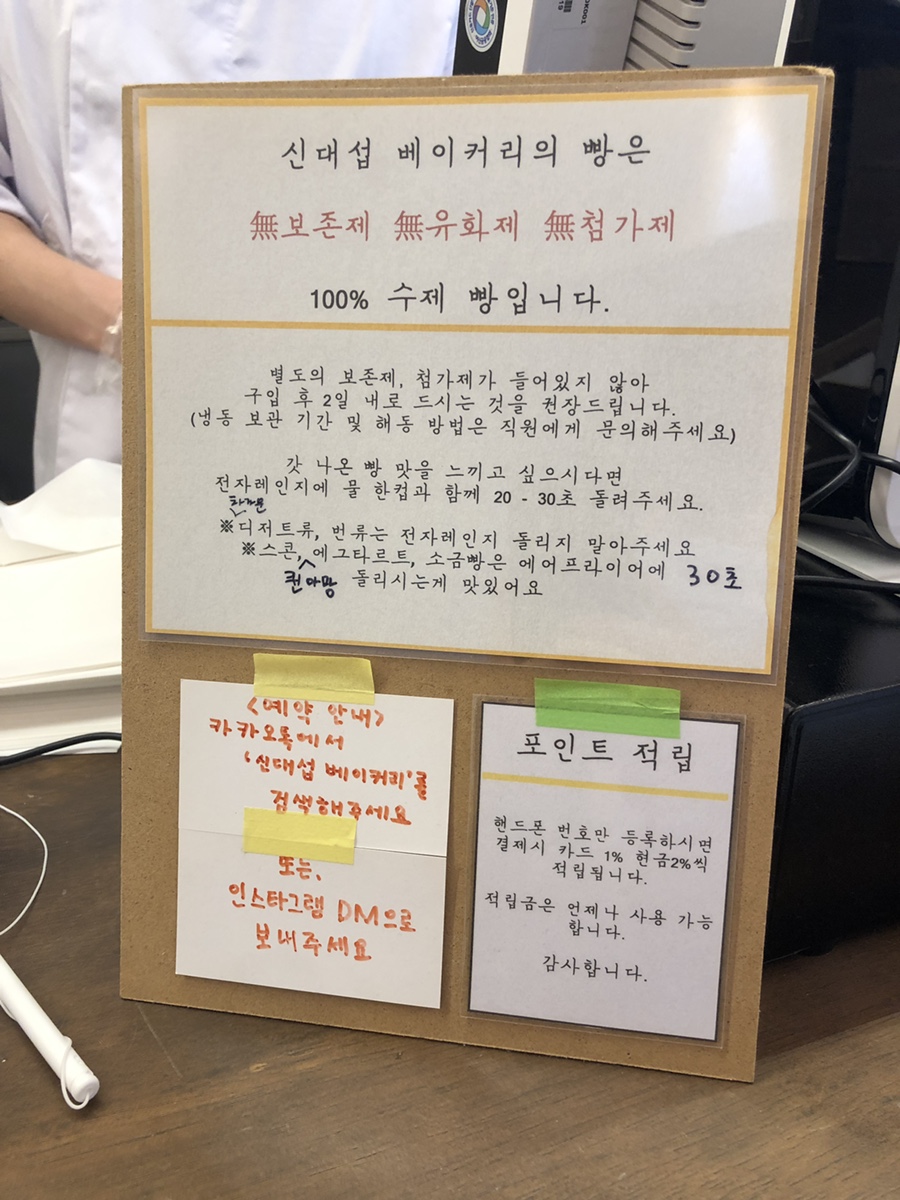 신대섭 베이커리의 빵은
無보존제 無유화제 無첨가제
100% 수제 빵입니다.
별도의 보존제, 첨가제가 들어있지 않아
구입 후 2일 내로 드시는 것을 권장드립니다.
(냉동 보관 기간 및 해동 방법은 직원에게 문의해주세요)
갓 나온 빵 맛을 느끼고 싶으시다면
전자레인지에 물 한컵과 함께 20 - 30초 돌려주세요.
※디저트류, 번류는 전자레인지 돌리지 말아주세요
※스콘, 에그타르트, 소금빵은 에어프라이어에 30초
퀸아망 돌리시는게 맛있어요
<예약 안내>
카카오톡에서
'신대섭 베이커리'를
검색해주세요
또는,
인스타그램 DM으로
보내주세요
포인트 적립
핸드폰 번호만 등록하시면
결제시 카드 1% 현금2%씩
적립됩니다.
적립금은 언제나 사용 가능
합니다.
감사합니다.